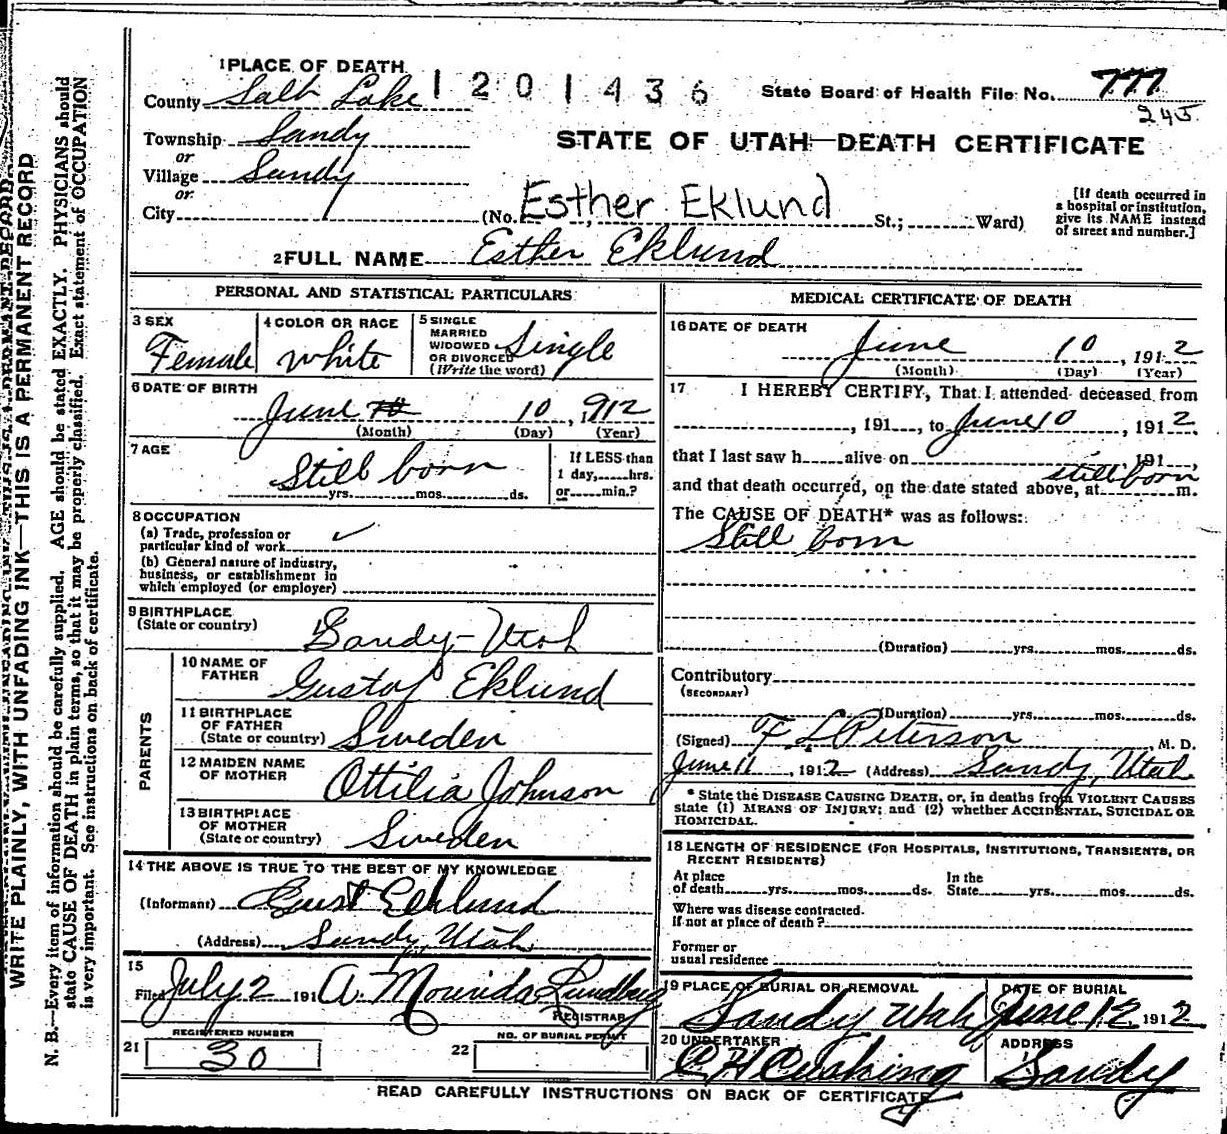 1 PLACE OF DEATH
1201436
State Board of Health File No. 777
245
County Salt Lake
Township Sandy
or
Village Sandy
or
City (No. Esther Eklund St.; Ward)
STATE OF UTAH—DEATH CERTIFICATE
[If death occurred in
a hospital or institution,
give its NAME instead
of street and number.]
2 FULL NAME Esther Eklund
PERSONAL AND STATISTICAL PARTICULARS
3 SEX
Female
4 COLOR OR RACE
White
5 SINGLE
MARRIED
WIDOWED
OR DIVORCED
(Write the word)
Single
6 DATE OF BIRTH
June 10, 912
(Month) (Day) (Year)
7 AGE
Still born
yrs. mos. ds.
If LESS than
1 day, hrs.
or min.?
8 OCCUPATION
(a) Trade, profession or
particular kind of work
(b) General nature of industry,
business, or establishment in
which employed (or employer)
9 BIRTHPLACE
(State or country)
Sandy-Utah
PARENTS
10 NAME OF
FATHER
Gustof Eklund
11 BIRTHPLACE
OF FATHER
(State or country)
Sweden
12 MAIDEN NAME
OF MOTHER
Ottilia Johnson
13 BIRTHPLACE
OF MOTHER
(State or country)
Sweden
14 THE ABOVE IS TRUE TO THE BEST OF MY KNOWLEDGE
(Informant) Gust Eklund
(Address) Sandy, Utah
15
Filed July 2 191 A. Lundberg
REGISTRAR
REGISTERED NUMBER
21 30
NO. OF BURIAL PERMIT
22
MEDICAL CERTIFICATE OF DEATH
16 DATE OF DEATH
June 10, 1912
(Month) (Day) (Year)
17 I HEREBY CERTIFY, That I attended deceased from
, 191 , to June 10, 1912.
that I last saw h alive on , 191 ,
still born
and that death occurred, on the date stated above, at m.
The CAUSE OF DEATH* was as follows:
Still born
(Duration) yrs. mos. ds.
Contributory
(SECONDARY)
(Duration) yrs. mos. ds.
(Signed) F L Peterson, M. D.
June 11, 1912 (Address) Sandy, Utah
* State the DISEASE CAUSING DEATH, or, in deaths from VIOLENT CAUSES
state (1) MEANS OF INJURY; and (2) whether ACCIDENTAL, SUICIDAL OR
HOMICIDAL.
18 LENGTH OF RESIDENCE (FOR HOSPITALS, INSTITUTIONS, TRANSIENTS, OR
RECENT RESIDENTS)
At place
of death yrs. mos. ds.
In the
State yrs. mos. ds.
Where was disease contracted.
If not at place of death?
Former or
usual residence
19 PLACE OF BURIAL OR REMOVAL
Sandy Utah
DATE OF BURIAL
June 12 1912
20 UNDERTAKER
C H Cushing
ADDRESS
Sandy
READ CAREFULLY INSTRUCTIONS ON BACK OF CERTIFICATE
WRITE PLAINLY, WITH UNFADING INK—THIS IS A PERMANENT RECORD
N. B.—Every item of information should be carefully supplied. AGE should be stated EXACTLY. PHYSICIANS should
state CAUSE OF DEATH in plain terms, so that it may be properly classified. Exact statement of OCCUPATION
is very important. See instructions on back of certificate.